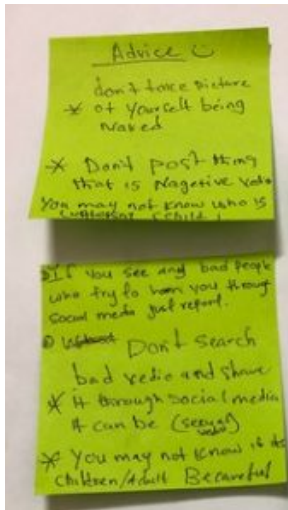 Advice
don't take Picture
* of Yourself being
Naked
* Don't Post thing
that is Nagetive
You may not know who is
If You see any bad People
who try to harm you through
Social media just report.
Don't Search
bad vedio and share
* it through Social media
it can be (sexual
* You may not know if its
Children/Adult Becareful